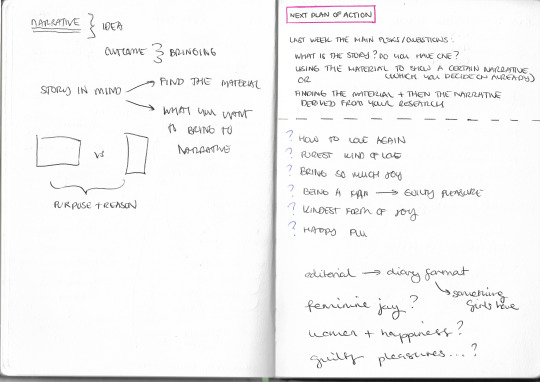 NARRATIVE } IDEA
OUTCOME } BRINGING
STORY IN MIND → FIND THE MATERIAL
→ WHAT YOU WANT
TO BRING TO
NARRATIVE
VS
PURPOSE + REASON
NEXT PLAN OF ACTION
LAST WEEK THE MAIN /QUESTIONS:
WHAT IS THE STORY? DO YOU HAVE ONE?
USING THE MATERIAL TO SHOW A CERTAIN NARRATIVE
OR (WHICH YOU DECIDE ON ALREADY)
FINDING THE MATERIAL + THEN THE NARRATIVE
DERIVED FROM YOUR RESEARCH
? HOW TO LOVE AGAIN
? PUREST KIND OF LOVE
? BRING SO MUCH JOY
? BEING A → GUILTY PLEASURE
? KINDEST FORM OF JOY
? HAPPY PILL
editorial → diary format
↘ something
girls have
feminine joy?
women + happiness?
guilty pleasures...?